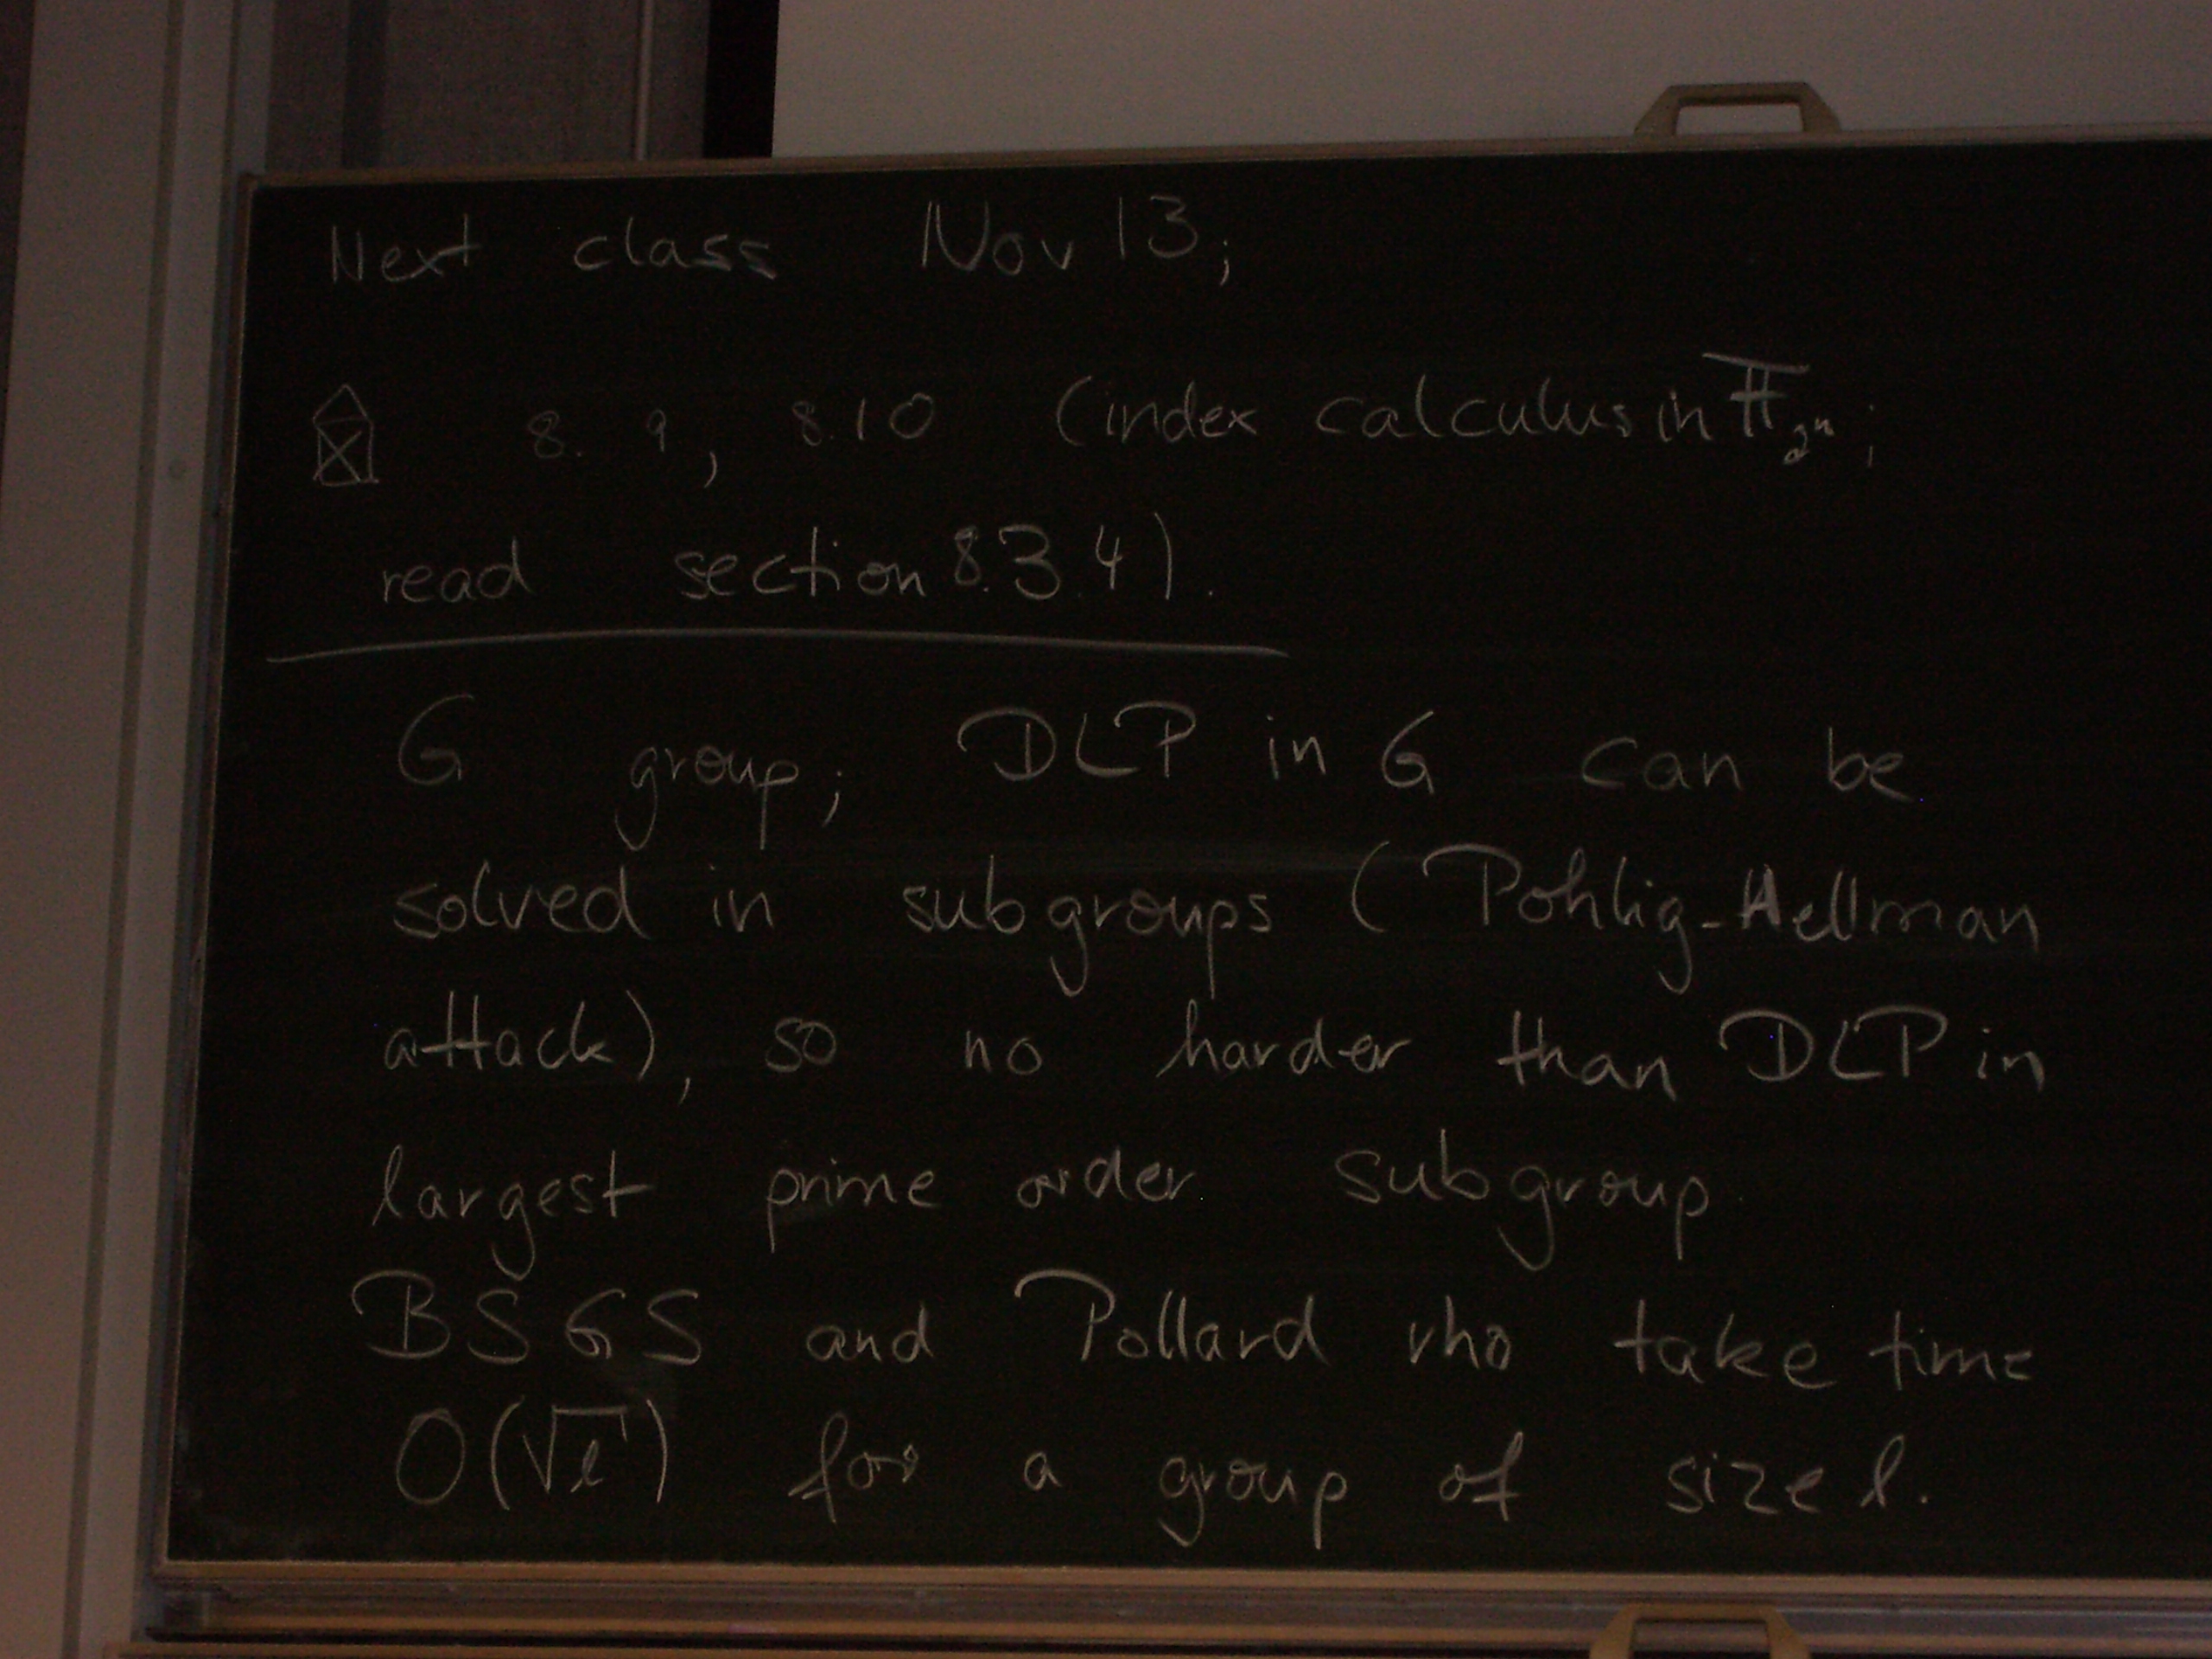 Next class Nov 13;
8.9, 8.10 (index calculus in 𝔽₂ⁿ;
read section 8.3.4).
G group; DLP in G can be
solved in subgroups (Pohlig-Hellman
attack), so no harder than DLP in
largest prime order subgroup.
BSGS and Pollard rho take time
O(√ℓ) for a group of size ℓ.